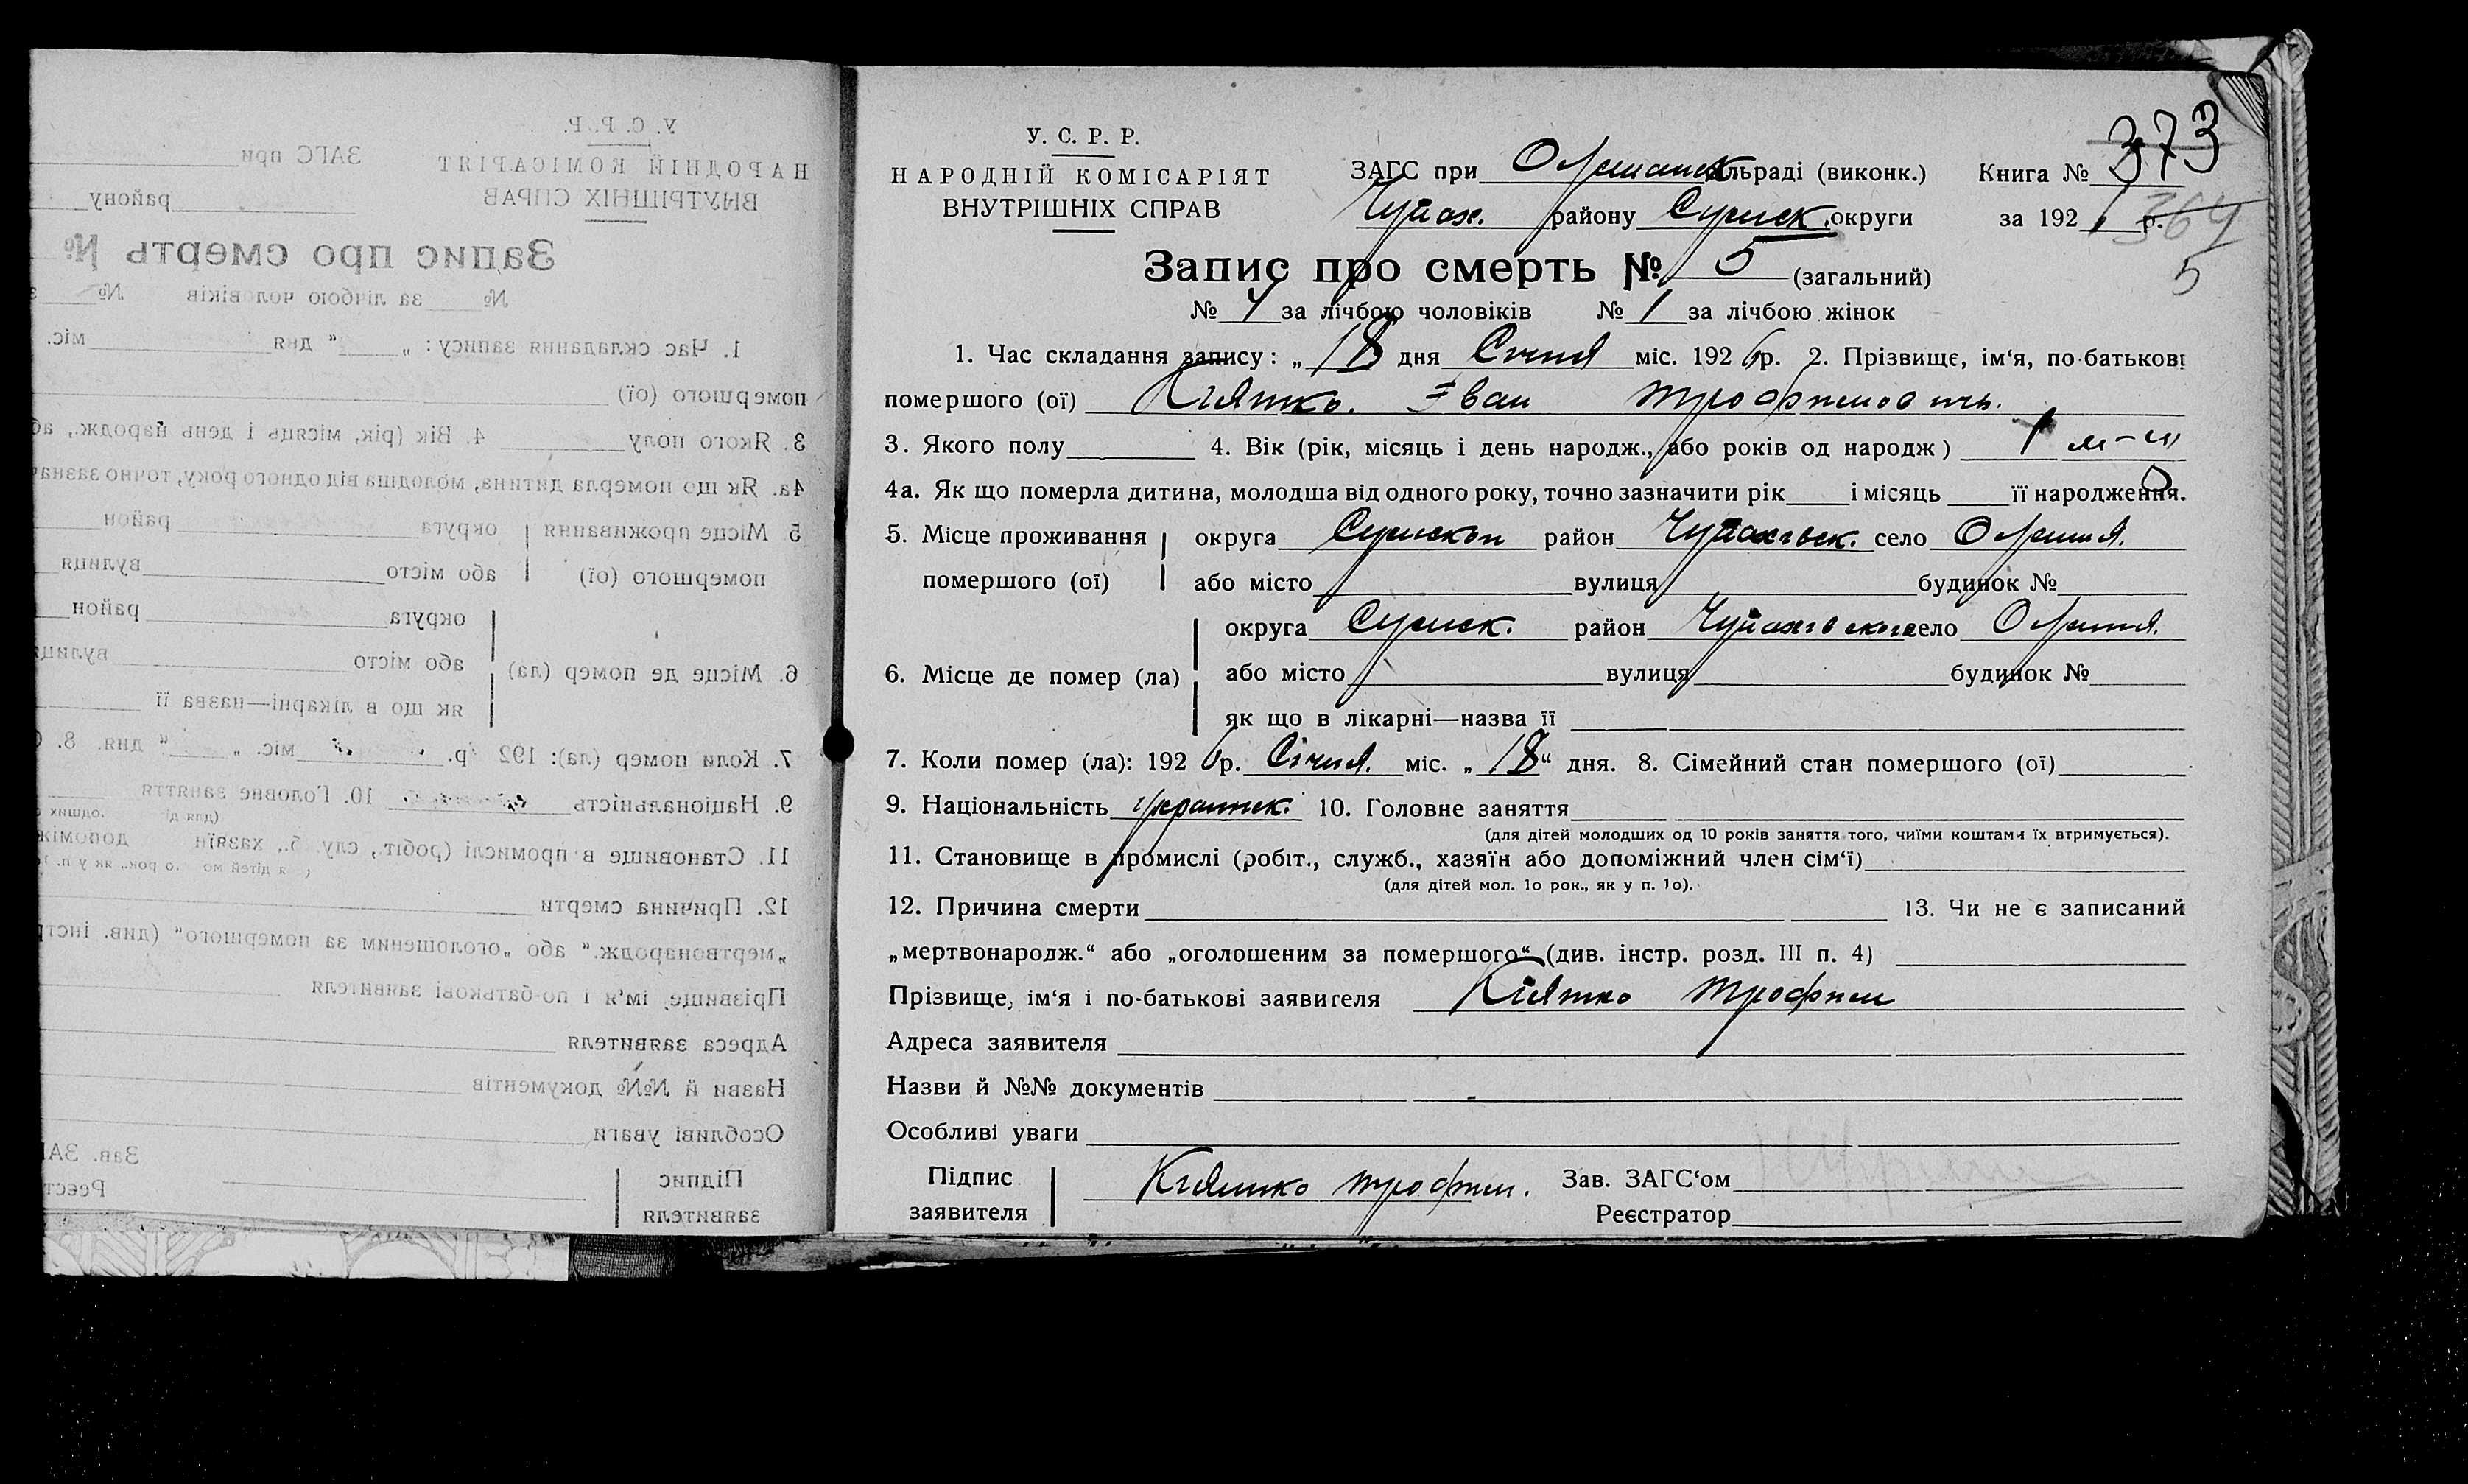 У. С. Р. Р.
НАРОДНІЙ КОМІСАРІЯТ
ВНУТРІШНІХ СПРАВ
ЗАГС при Оршанск льраді (виконк.) Книга № 373
Чупах. району Сумск. округи за 192 р. 364
5
Запис про смерть № 5 (загальний)
№ 4 за лічбою чоловіків № 1 за лічбою жінок
1. Час складання запису: „18 дня Січня міс. 1926 р. 2. Прізвище, ім‘я, по-батькові
помершого (ої) Кіятко. Іван Трофимович.
3. Якого полу 4. Вік (рік, місяць і день народж., або років од народж) 1 м-ц
4а. Як що померла дитина, молодша від одного року, точно зазначити рік і місяць її народження.
5. Місце проживання помершого (ої) округа Сумской район Чупаховск. село
або місто вулиця будинок №
6. Місце де помер (ла) округа Сумск. район Чупаховског село
або місто вулиця будинок №
як що в лікарні—назва її
7. Коли помер (ла): 1926 р. Січня. міс. „18“ дня. 8. Сімейний стан помершого (ої)
9. Національність Украинск. 10. Головне заняття
(для дітей молодших од 10 років заняття того, чиїми коштами їх втримується).
11. Становище в промислі (робіт., служб., хазяїн або допоміжний член сім‘ї)
(для дітей мол. 1о рок., як у п. 1о).
12. Причина смерти 13. Чи не є записаний
„мертвонародж.“ або „оголошеним за помершого“ (див. інстр. розд. III п. 4)
Прізвище, ім‘я і по-батькові заявителя Кіятко Трофим
Адреса заявителя
Назви й №№ документів
Особливі уваги
Підпис заявителя Киятко Трофим. Зав. ЗАГС‘ом
Реєстратор